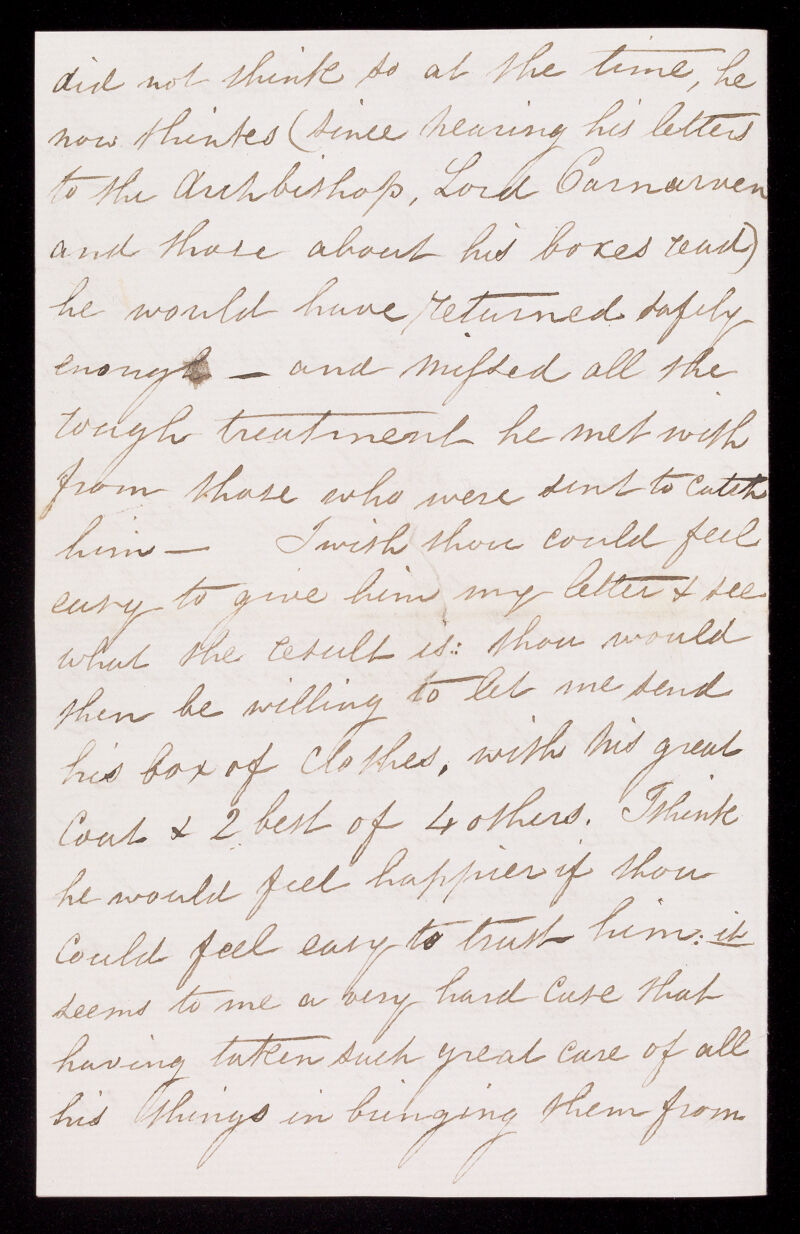 did not think so at the time, he
now thinks (since hearing his letters
to the Archbishop, Lord Carnarven
and those about his boxes read)
he would have returned safely
enough — and missed all the
rough treatment he met with
from those who were sent to catch
him — I wish thou could feel
easy to give him my letter & see
what the result is: thou would
then be willing to let me send
his box of clothes, with his great
Coat & 2 best of 4 others. I think
he would feel happier if thou
could feel easy to trust him: it
seems to me a very hard case that
having taken such great care of all
his things in bringing them from